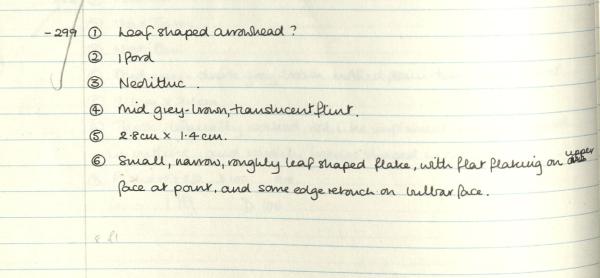 -299 ① Leaf shaped arrowhead?
② Ipord
③ Neolithic.
④ Mid grey-brown, translucent flint.
⑤ 2.8cm × 1.4cm.
⑥ Small, narrow, roughly leaf shaped flake, with flat flaking on upper
face at point, and some edge retouch on bulbar face.